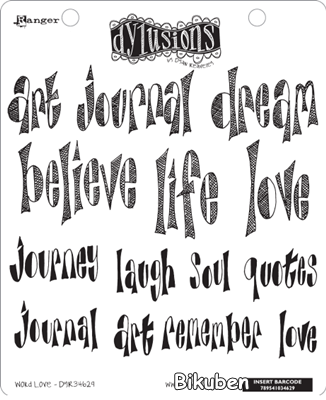 Ranger
dylusions
by Dyan Reaveley
art journal dream
believe life love
journey laugh soul quotes
journal art remember love
Word Love - DYR34629
INSERT BARCODE
789541034629
Bikuben